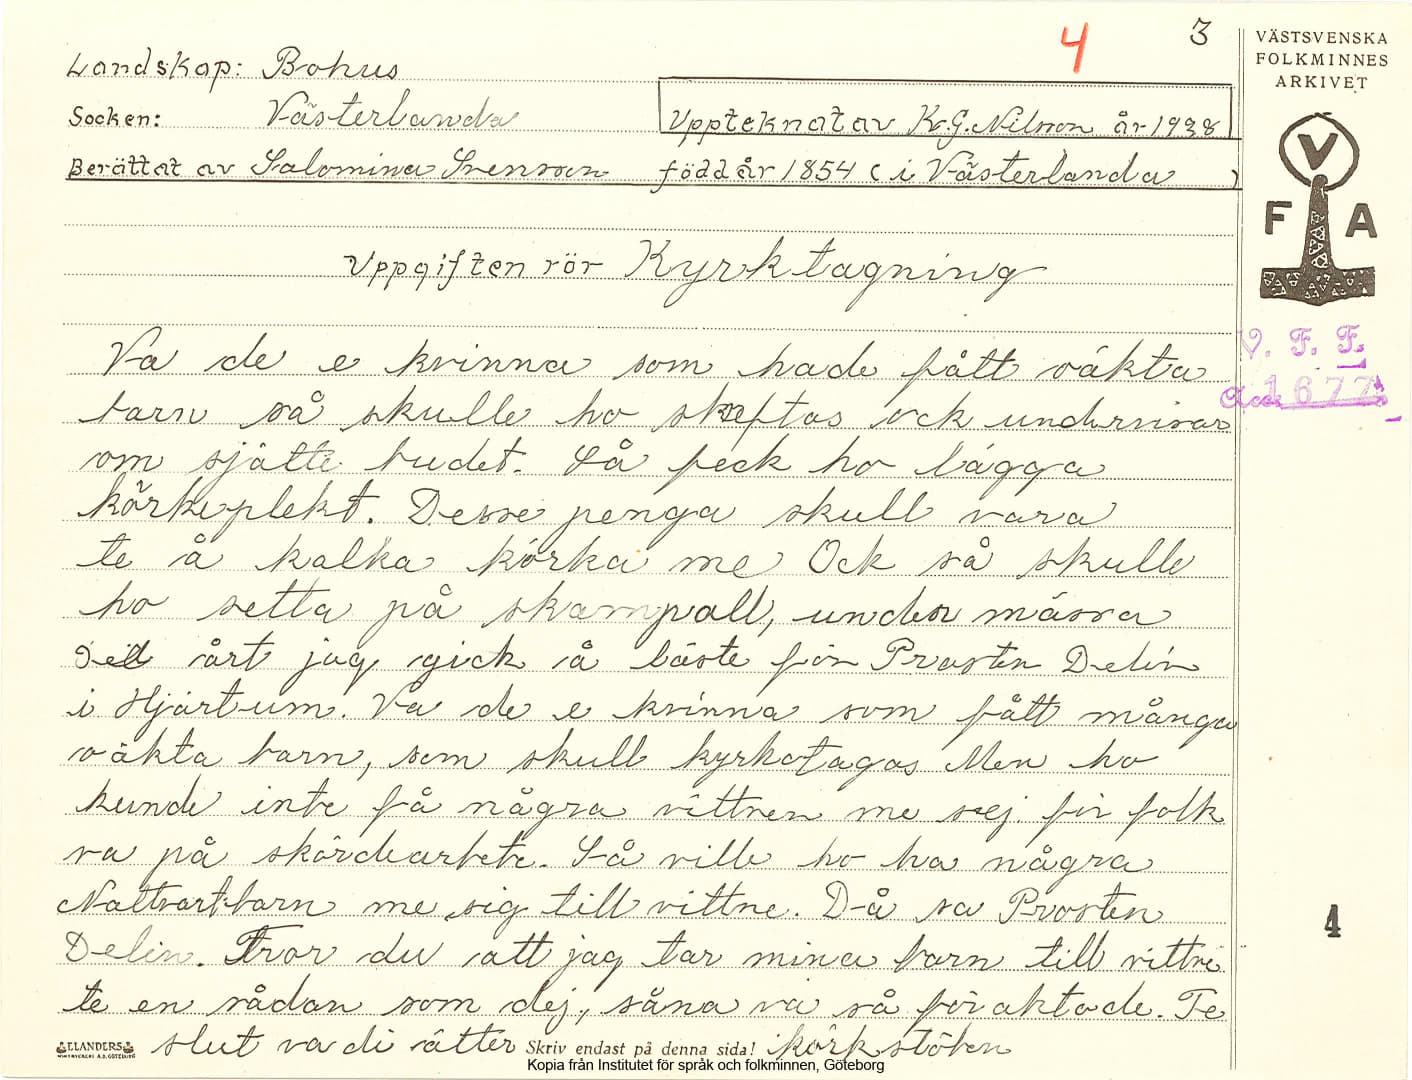 4 3
VÄSTSVENSKA
FOLKMINNES
ARKIVET
Landskap: Bohus
Socken: Västerlanda
Upptecknat av K.G. Nilsson år 1938
Berättat av Salomina Svensson född år 1854 ( i Västerlanda )
V
F A
Uppgiften rör Kyrktagning
V. F. F.
Acc. 1677
Va de e kvinna som hade fått oäkta
barn så skulle ho skreftas ock undervisas
om sjätte budet. Så feck ho lägga
körkeplekt. Desse penga skull vara
te å kalka körka me Ock så skulle
ho setta på skampall, under mässa
årt jag gick å läste för Prosten Delin
i Hjärtum. Va de e kvinna som fått många
oäkta barn, som skull kyrkotagas Men ho
kunde inte få några vittnen me sej för folk
va på skördearbete. Så ville ho ha några
Nattvartbarn me sig till vittne. Då sa Prosten
Delin. Tror du att jag tar mina barn till vittne
te en sådan som dej, såna va så föraktade. Te
slut va di ätter i körkstöten
4
ELANDERS
Skriv endast på denna sida!
Kopia från Institutet för språk och folkminnen, Göteborg